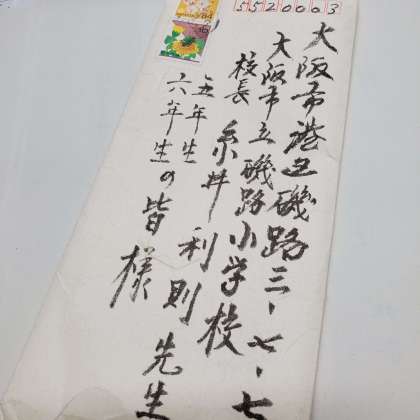 5520003
大阪市港区磯路三-七-七
大阪市立磯路小学校
校長 糸井利則先生
五年生
六年生の皆様
84